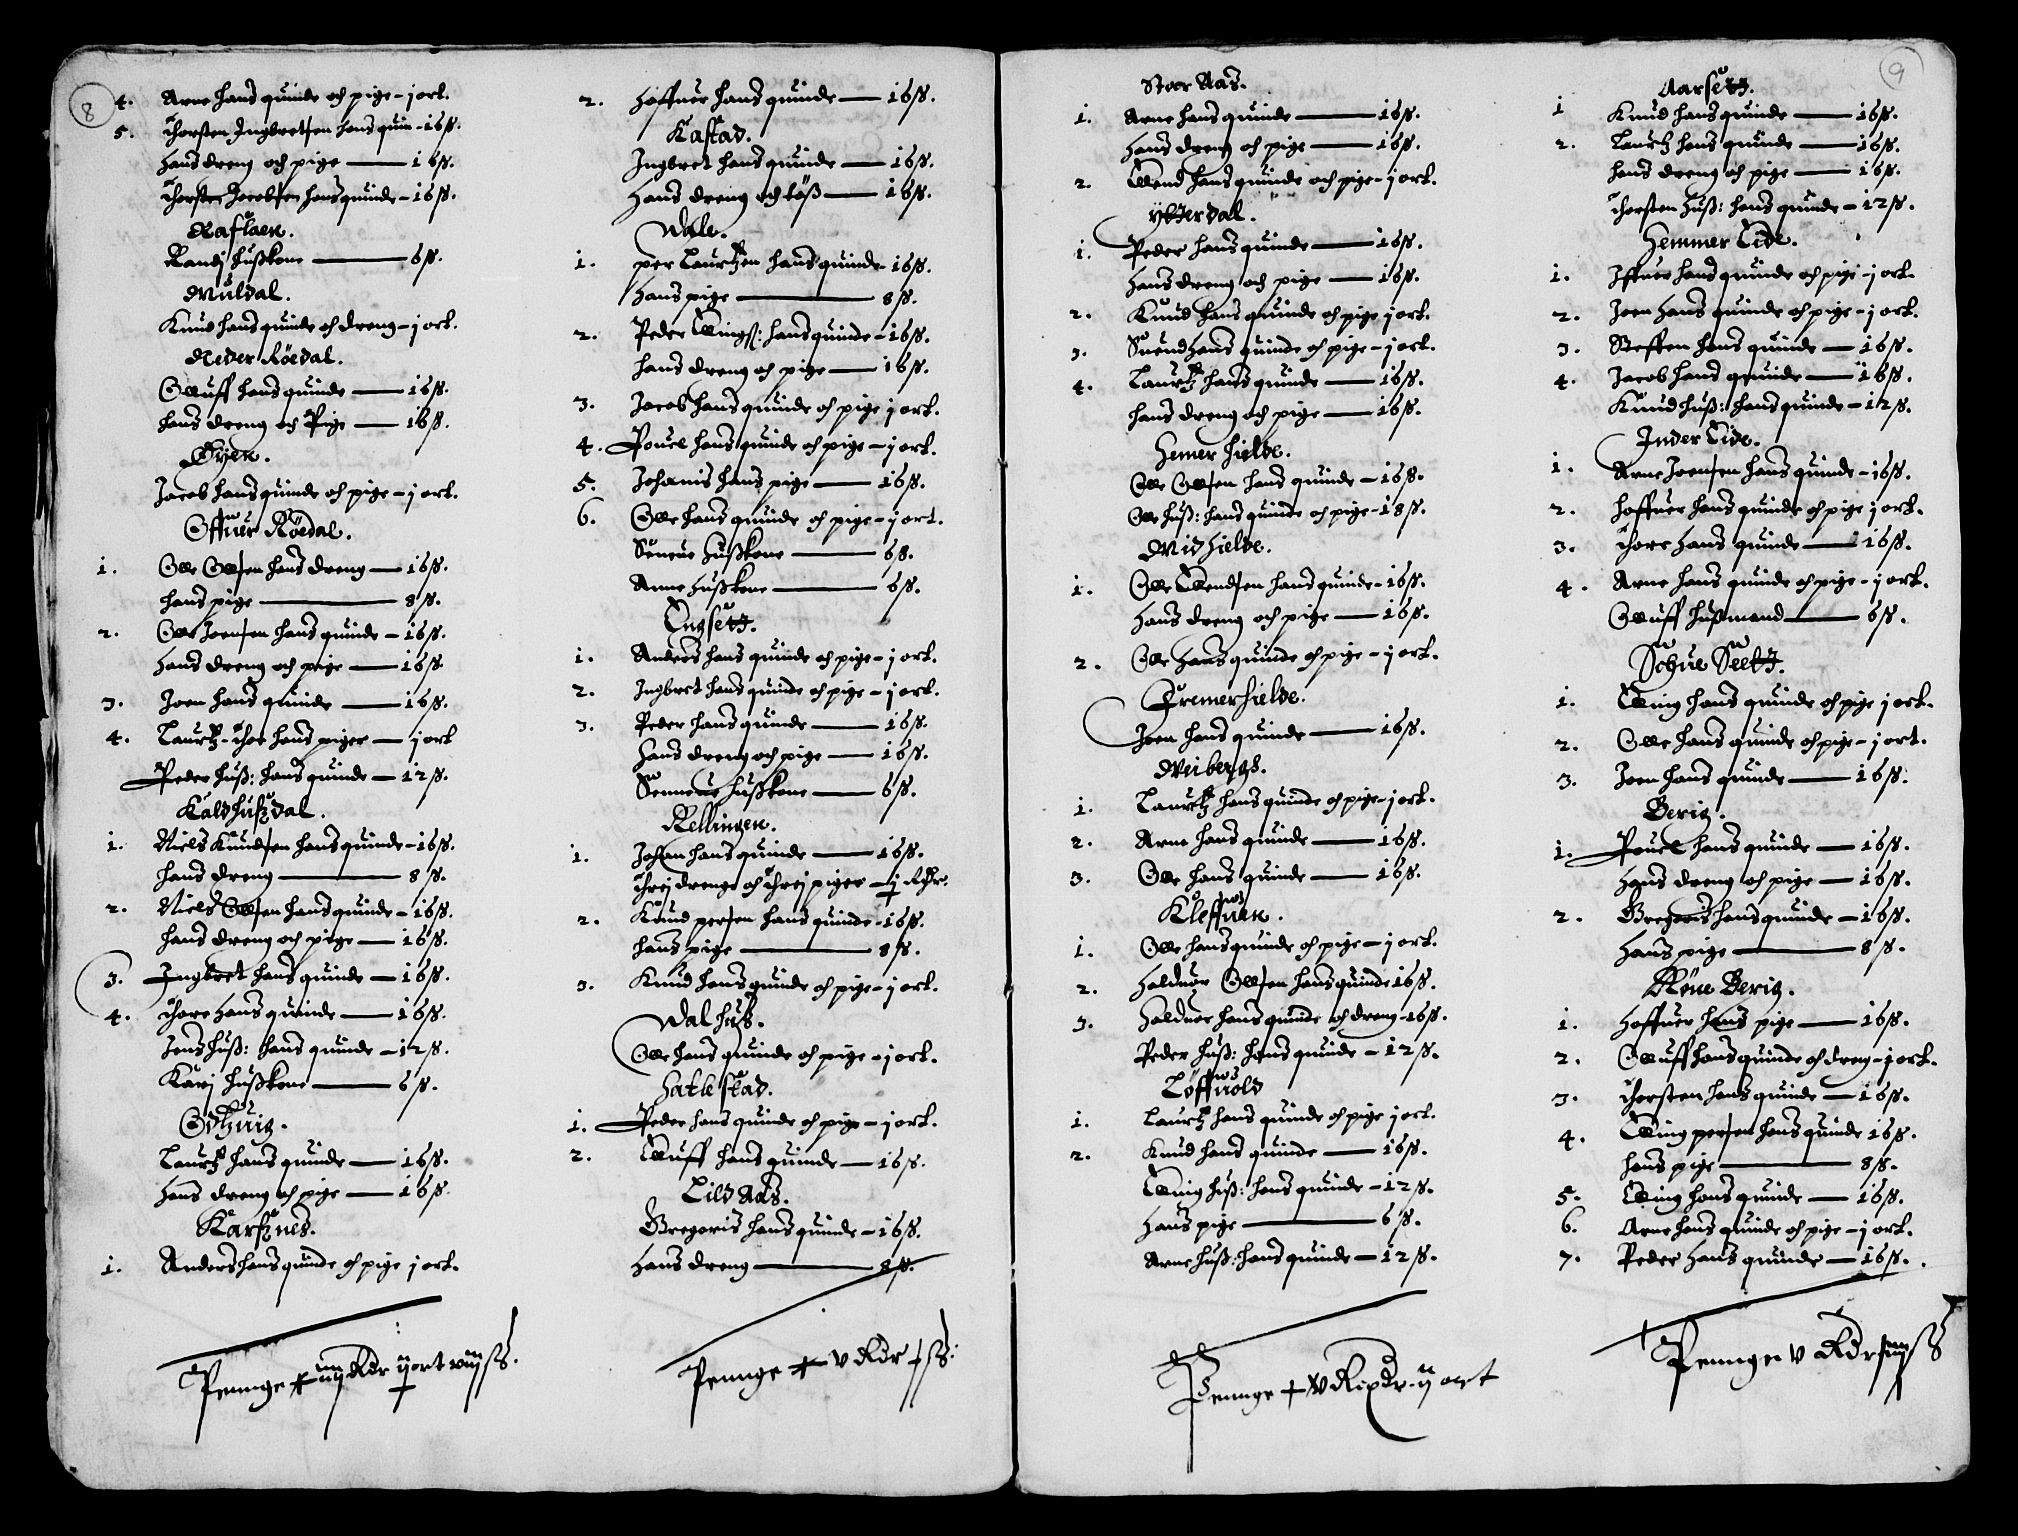 8
4. Arne hans quinde och pige – j ort.
5. Thorsten Ingbretsen hans quin – 16 ß.
Hans dreng och pige — 16 ß.
Thorsten Jacobsen hans quinde – 16 ß.
Raflaen.
Randj Huskone — 6 ß.
Muldal.
Knud hans quinde och dreng – j ort.
Neder Röedal.
Oluff hans quinde — 16 ß.
Hans dreng och Pige — 16 ß.
Öyen.
Jacob hans quinde och pige – j ort.
Offuer Röedal.
1. Olle Ollsen hans dreng — 16 ß.
Hans pige — 8 ß.
2. Olle Joensen hans quinde – 16 ß.
Hans dreng och pige — 16 ß.
3. Joen hans quinde — 16 ß.
4. Laurtz – Thor hans piger — j ort
Peder Huß: hans quinde — 12 ß.
Kaldhußdal.
1. Niels Knudsen hans quinde – 16 ß.
Hans dreng — 8 ß.
2. Niels Ollsen hans quinde – 16 ß.
Hans dreng och pige — 16 ß.
3. Ingbret hans quinde — 16 ß.
4. Thore hans quinde — 16 ß.
Jens Huß: hans quinde – 12 ß.
Karj Huskone — 6 ß.
Odhuig.
Laurtz hans quinde — 16 ß.
Hans dreng och pige — 16 ß.
Karsnes.
1. Anders hans quinde och pige j ort.
Pennge Rdr ij ort viij ß.
2. Hoffuer hans quinde — 16 ß.
Kastad.
Ingbret hans quinde — 16 ß.
Hans dreng och töß — 16 ß.
Wale.
1. Per Laurtzen hans quinde – 16 ß.
Hans pige — 8 ß.
2. Peder Ellingß: hans quinde – 16 ß.
Hans dreng och pige — 16 ß.
3. Jacob hans quinde och pige j ort.
4. Pouel hans quinde och pige – j ort.
5. Johanis hans pige — 16 ß.
6. Olle hans quinde och pige – j ort.
Huskone — 6 ß.
Anne Huskone — 6 ß.
Engsett.
1. Anders hans quinde och pige – j ort.
2. Ingbret hans quinde och pige – j ort.
3. Peder hans quinde — 16 ß.
Hans dreng och pige — 16 ß.
Huskone — 6 ß.
Rellingen.
1. Johan hans quinde — 16 ß.
Threj drenge och Threj piger – j Rdr.
2. Knud Persen hans quinde – 16 ß.
Hans pige — 8 ß.
3. Knud hans quinde och pige – j ort.
Walhuß.
Olle hans quinde och pige – j ort.
Hatlestad.
1. Peder hans quinde och pige – j ort.
2. Elluff hans quinde — 16 ß.
Lild Aas.
Gregoris hans quinde – 16 ß.
Hans dreng — 8 ß.
Pennge v Rdr ß.
Stoer Aas.
1. Arne hans quinde — 16 ß.
Hans dreng och pige — 16 ß.
2. Ellend hans quinde och pige – j ort.
Ytterdal.
1. Peder hans quinde — 16 ß.
Hans dreng och pige — 16 ß.
2. Knud hans quinde och pige j ort.
3. Suend hans quinde och pige – j ort.
4. Laurtz hans quinde — 16 ß.
Hans dreng och pige — 16 ß.
Hemer Hielde.
Olle Ollsen hans quinde – 16 ß.
Olle Huß: hans quinde och pige – 18 ß.
Mid Hielde.
1. Olle Ellendsen hans quinde – 16 ß.
Hans dreng och pige — 16 ß.
2. Olle hans quinde och pige – j ort.
Fremer Hielde.
Joen hans quinde — 16 ß.
Meibergs.
1. Laurtz hans quinde och pige – j ort.
2. Arne hans quinde — 16 ß.
3. Olle hans quinde — 16 ß.
Kleffuen.
1. Olle hans quinde och pige – j ort.
2. Halduor Ollsen hans quinde 16 ß.
3. Halduor hans quinde och dreng – 16 ß.
Peder Huß: hans quinde – 12 ß.
Löffuold
1. Laurtz hans quinde och pige j ort.
2. Knud hans quinde — 16 ß.
Elling Huß: hans quinde – 12 ß.
Hans pige — 6 ß.
Arne Huß: hans quinde — 12 ß.
Pennge Rixdr ij ort
9
Aarsett.
1 Knud hans quinde — 16 ß.
2. Laurtz hans quinde — 16 ß.
Hans dreng och pige — 16 ß.
Thorsten Huß: hans quinde – 12 ß.
Hemmer Eide.
1. Iffuer hans quinde och pige – j ort.
2. Joen hans quinde och pige – j ort.
3. Steffen hans quinde — 16 ß.
4. Jacob hans quinde — 16 ß.
Knud Huß: hans quinde – 12 ß.
Inder Eide.
1. Arne Joensen hans quinde – 16 ß.
2. Hoffuer hans quinde och pige j ort.
3. Thore hans quinde — 16 ß.
4. Arne hans quinde och pige – j ort.
Olluff Hußmand — 6 ß.
1. Elling hans quinde och pige j ort.
2. Olle hans quinde och pige – j ort.
3. Joen hans quinde — 16 ß.
Berig.
1. Pouel hans quinde — 16 ß.
Hans dreng och pige — 16 ß.
2. Gregoris hans quinde – 16 ß.
Hans pige — 8 ß.
Röne Berig.
1. Hoffuer hans pige — 16 ß.
2. Olluff hans quinde och dreng – j ort.
3. Thorsten hans quinde – 16 ß.
4. Elling Persen hans quinde 16 ß.
Hans pige — 8 ß.
5. Elling hans quinde — 16 ß.
6. Arne hans quinde och pige – j ort.
7. Peder hans quinde — 16 ß.
Pennge v Rdr ß